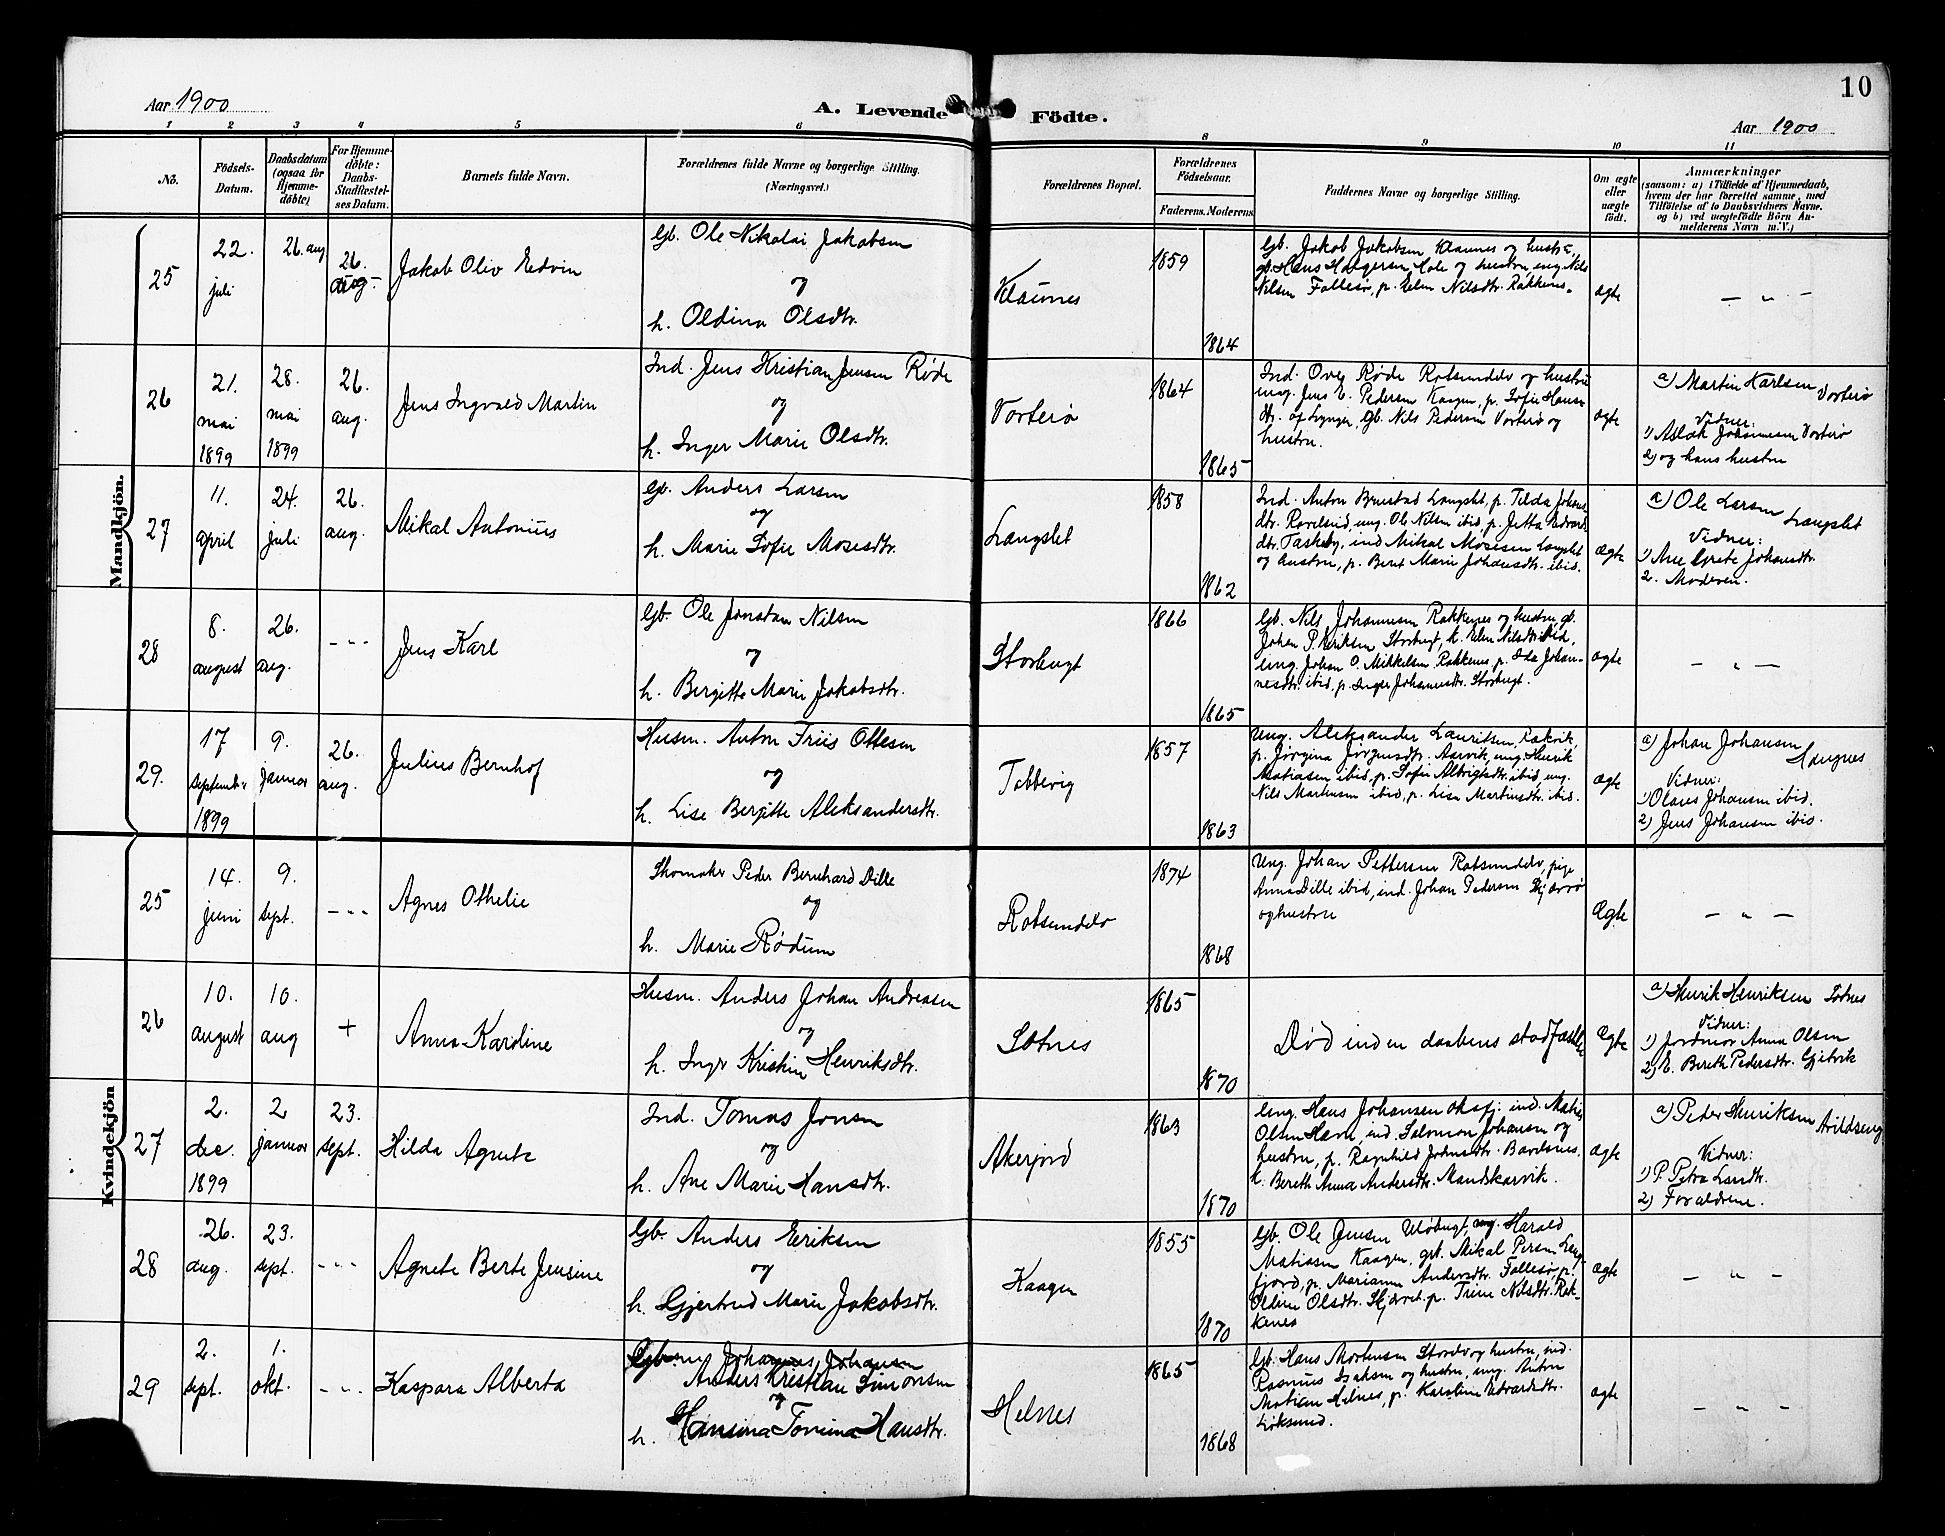 10
Aar 1900
A. Levende Födte.
Aar 1900
1 2 3 4 5 6 8 9 10 11
No.
Födsels-
Datum.
Daabsdatum
(ogsaa for
Hjemme-
döbte)
For Hjemme-
döbte:
Daabs-
Stadfæstel-
ses Datum.
Barnets fulde Navn.
Forældrenes fulde Navne og borgerlige Stilling.
(Næringsvei.)
Forældrenes Bopæl.
Forældrenes
Födselsaar.
Faderens. Moderens.
Faddernes Navne og borgerlige Stilling.
Om ægte
eller
uægte
födt.
Anmærkninger
(saasom: a) i Tilfælde af Hjemmedaab,
hvem der har forrettet samme, med
Tilföielse af to Daabsvidners Navne.
og b) ved uegtefödte Börn An-
melderens Navn m.V.)
Mandkjön.
25
22.
juli
26. aug
26.
aug.
Jakob Oliv Edvin
Gb. Ole Nikolai Jakobsen
og
h. Oldina Olsdtr.
Klaunes
1859
1864
Gb. Jakob Jakobsen Klaunes og hustru,
gb. Hans Holgersen Hole og hustru, ung. Nils
Nilsen Follesø, p. Elen Nilsdtr. Rakkenes.
ægte
— " —
26
21.
mai
1899
28.
mai
1899
26.
aug.
Jens Ingvald Martin
Ind. Jens Kristian Jensen Røde
og
h. Inger Marie Olsdtr.
Vorterø
1864
1865
Ind. Ove Røde Rotsundelv og hustru
ung. Jens E. Pedersen Kaagen, p. Sofie Hans-
dtr. af Lynger, Gb. Nils Pedersen Vorterø og
hustru.
ægte
a) Martin Karlsen Vorterø
Vidner:
1) Aslak Johannesen Vorterø
2) og hans hustru
27
11.
april
24.
juli
26.
aug.
Mikal Antonius
Gb. Anders Larsen
og
h. Marie Sofie Mosesdtr.
Langslet
1858
1862
Ind. Anton Brustad Langslet, p. Tilda Johns
dtr. Ravelseid, ung. Ole Nilsen ibid, p. Jetta Edvard
dtr. Taskeby, ind Mikal Mosesen Langslet
og hustru, p. Beret Marie Johansdtr. ibid.
Ægte
a) Ole Larsen Langslet
Vidner:
1) Ane Grete Johansdtr.
2. Moderen.
28
8.
august
26.
aug.
- - -
Jens Karl
Gb. Ole Jonatan Nilsen
og
h. Bergitte Marie Jakobsdtr.
Storbugt
1866
1865
Gb. Nils Johannesen Rakkenes og hustru, gb.
Johan P. Eriksen Storbugt, k. Elen Nilsdtr. ibid,
ung. Johan O. Mikkelsen Rakkenes, p. Ida Johan-
nesdtr. ibid, p. Inger Johannesdtr. Storbugt.
ægte
— " —
29.
17
septembr
1899
9.
januar
26.
aug.
Julius Bernhof
Husm. Anton Friis Ottesen
og
h. Lise Bergitte Aleksandersdtr.
Tabbevig
1857
1863
Ung. Aleksander Lauritsen, Rakvik,
p. Jørgina Jørgensdtr. Aarvik, ung. Henrik
Matiasen ibid, p. Sofie Albrigtsdtr. ibid, ung.
Nils Martinsen ibid, p. Lise Martinsdtr. ibid.
Ægte
a) Johan Johansen Haugnes
Vidner:
1) Olaus Johansen ibid.
2) Jens Johansen ibid.
Kvindekjön
25
14.
juni
9.
sept.
- - -
Agnes Othelie
Skomaker Peder Bernhard Dille
og
h. Marie Rødum
Rotsundelv
1874
1868
Ung. Johan Pettersen Rotsundelv, pige
Anna Dille ibid, ind. Johan Pedersen Skjærvø
og hustru
Ægte
— " —
26
10.
august
10.
aug
+
Anna Karoline
Husm. Anders Johan Andreasen
og
h. Inger Kristine Henriksdtr.
Sotnes
1865
1870
Død inden daabens stadfæstelse
Ægte
a) Henrik Henriksen Sotnes
Vidner:
1) Jordmor Anna Olsen
2) E. Bereth Pedersdtr. Gjetvik
27
2.
dec.
1899
2
januar
23.
sept.
Hilda Agnete
Ind. Tomas Jonsen
og
h. Ane Marie Hansdtr.
Akerjord
1863
1870
Ung. Hans Johansen Oksfj. ind. Matias
Olsen Havn, ind. Salomon Johansen og
hustru, p. Ragnhild Johnsdtr. Bavelsnes,
k. Bereth Anna Andersdtr. Mandskarvik.
ægte
a) Peder Henriksen Arildseng
Vidner:
1) P. Petra Larsdtr.
2) Forældrene.
28
26.
aug.
23.
sept.
- - -
Agnete Berte Jensine
Gb. Anders Eriksen
og
h. Gjertrud Marie Jakobsdtr.
Kaagen
1855
1870
Gb. Ole Jensen Uløbugt, ung. Harald
Matiasen Kaagen, gb. Mikal Persen Lang-
fjord, p. Marianne Andersdtr. Follesø, p.
Oline Olsdtr. p. Trine Nilsdtr. Rak-
kenes
Ægte
— " —
29
2.
sept.
1.
okt.
- - -
Kaspara Alberta
Gb. Johannes Johansen
Anders Kristian Simonsen
og
h. Hansina Tomina Hansdtr.
Helnes
1865
1868
Gb. Hans Mortensen Storelv og hustru, ind.
Rasmus Isaksen og hustru, ung. Anton
Matisen Helnes, p. Karoline Edvardsdtr.
Løksund.
ægte
— " —